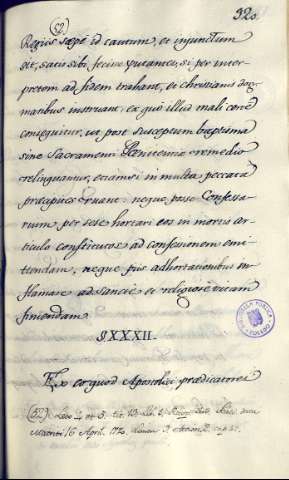 (52)
320.
Regiis sæpe id cautum, et injunctum
sit, satis sibi fecisse putantes, si per inter-
pretem ad fidem trahant, et christianis dog-
matibus instruant, ex quo illud mali certe
consequitur, ut post susceptum baptisma
sine Sacramenti Penitentiæ remedio
relinquantur, etiamsi in multa peccata
præcipites ruant: neque posse Confessa-
rium per sese hortari eos in mortis ar-
ticulo constitutos ad confesionem emi-
ttendam, neque piis adhortationibus in-
flamare ad sancte et religiose vitam
finiendam.
IXXXII.
Ex eo quod Apostolici prædicatores
(52) Leg. 4 et 5. tit. 13. Lib. 1.
16 April.